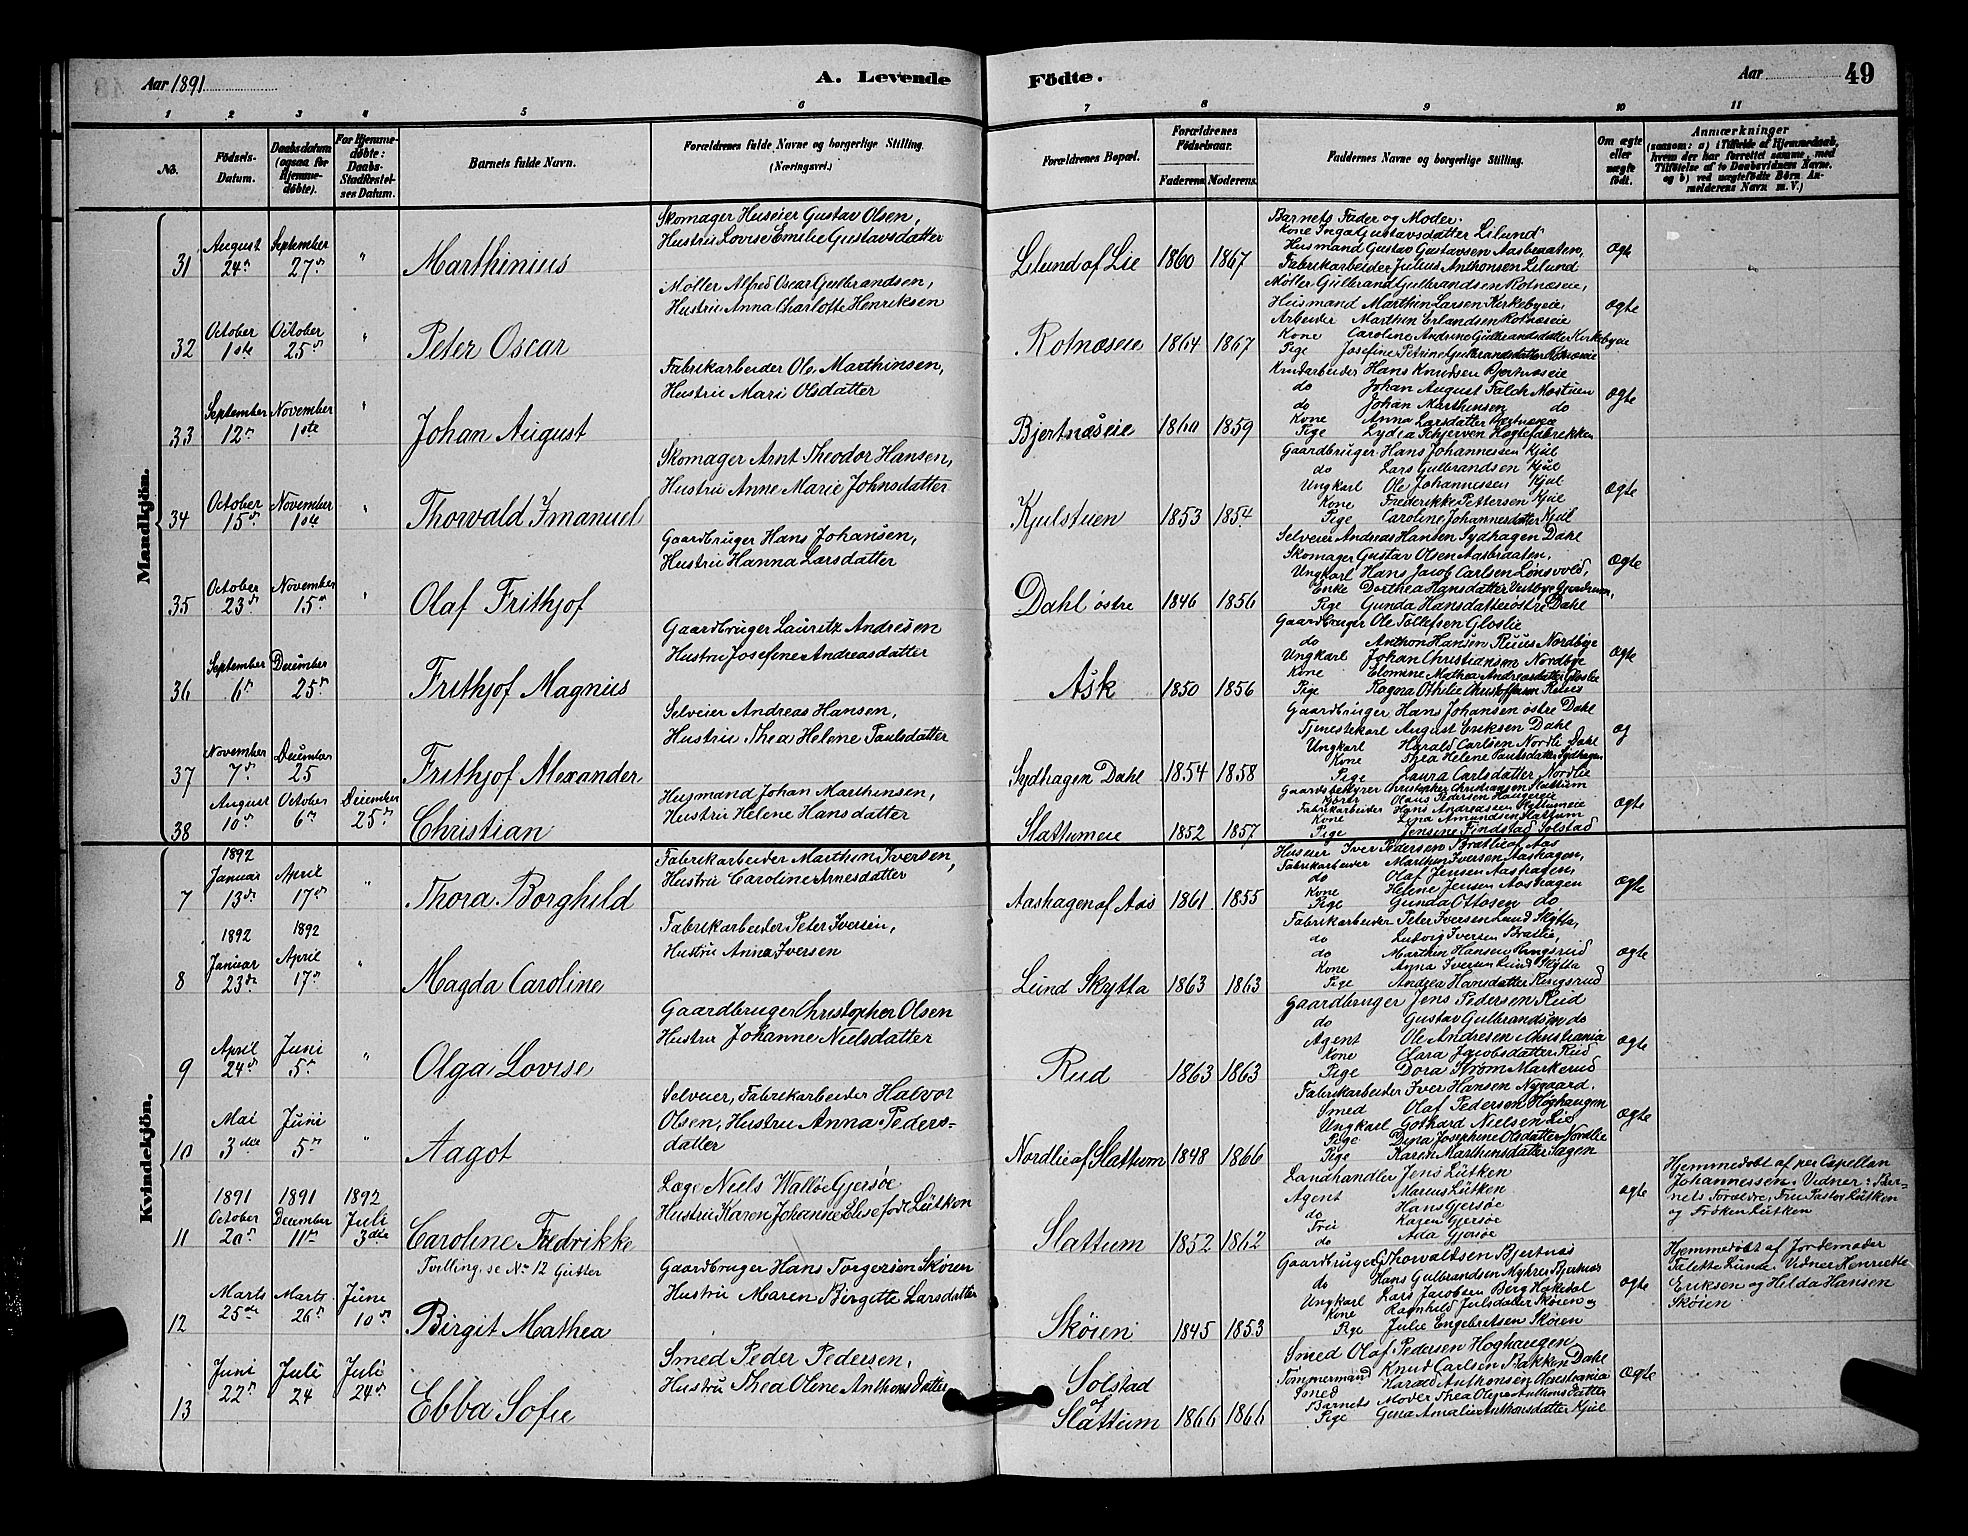 Aar 1891
A. Levende
Födte.
Aar
49
1 2 3 4 5 6 7 8 9 10 11
No.
Födsels-Datum.
Daabsdatum (ogsaa for Hjemmedöbte).
For Hjemmedöbte: Daabs Stadfæstelses Datum.
Barnets fulde Navn.
Forældrenes fulde Navne og borgerlige Stilling. (Næringsvei.)
Forældrenes Bopæl.
Forældrenes Födselsaar.
Faderens. Moderens.
Faddernes Navne og borgerlige Stilling.
Om ægte eller uægte födt.
Anmærkninger
(saasom: a) i Tilfælde af Hjemmedaab, hvem der har forrettet samme, med Tilföielse af to Daabsvidners Navne, og b) ved uægtefödte Börn Anmelderens Navn m. V.)
Mandkjön.
31 August 24de September 27de " Marthinius
Skomager Huseier Gustav Olsen,
Hustru Lovise Emilie Gustavsdatter
Lilund af Lie 1860 1867
Barnets Fader og Moder.
Kone Inga Gustavsdatter Lilund
Husmand Gustav Gustavsen Aasbraaten,
Fabrikarbeider Julius Anthonsen Lilund
Ægte
32 October 1ste October 25de " Peter Oscar
Møller Alfred Oscar Gulbrandsen,
Hustru Anna Charlotte Henriksen
Rotnæseie 1864 1867
Møller Gulbrand Gulbrandsen Rotnæseie,
Husmand Marthin Larsen Kirkebyeie
Arbeider Marthin Erlandsen Rotnæseie
Kone Caroline Andrine Gulbrandsdatter Kirkebyeie
Pige Josefine Petrine Gulbrandsdatter Rotnæseie
Ægte
33 September 12te November 1ste " Johan August
Fabrikarbeider Ole Marthinsen,
Hustru Mari Olsdatter
Bjertnæseie 1860 1859
Krudarbeider Hans Knudsen Bjertnæseie
do Johan August Falch Mostuen
do Johan Marthinsen do
Kone Anna Larsdatter Bjertnæseie
Pige Lydea Schjerven Hagtefabrekken
Ægte
34 October 15de November 1ste " Thorvald Imanuel
Skomager Arnt Theodor Hansen,
Hustru Anne Marie Johnsdatter
Kjulstuen 1853 1854
Gaardbruger Hans Johannessen Kjul
do Lars Gulbrandsen Kjul
Ungkarl Ole Johannessen Kjul
Kone Frederikke Pettersen Kjul
Pige Caroline Johannesdatter Kjul
Ægte
35 October 23de November 15de " Olaf Frithjof
Gaardbruger Hans Johansen,
Hustru Hanna Larsdatter
Dahl östre 1846 1856
Selveier Andreas Hansen Sydhagen Dahl
Skomager Gustav Olsen Aasbraaten,
Ungkarl Hans Jacob Carlsen Lønsvold,
Enke Dorthea Hansdatter
Pige Gunda Hansdatter østre Dahl
Ægte
36 September 6te December 25de Frithjof Magnus
Gaardbruger Lauritz Andresen
Hustru Josefine Andreasdatter
Ask 1850 1856
Gaardbruger Ole Tollefsen Gloslie
do Anthon Hansen Ruus Nordbye
Ungkarl Johan Christiansen Nordbye
Kone Elomine Mathea Andreasdatter Gloslie
Pige Ragna Othilie Christoffersen Ruus
Ægte
37 November 7de December 25 Frithjof Alexander
Selveier Andreas Hansen,
Hustru Thea Helene Paulsdatter
Sydhagen Dahl 1854 1858
Gaardbruger Hans Johansen östre Dahl
Tjenestekarl August Eriksen Dahl
Ungkarl Harald Carlsen Nordli Dahl
Kone Thea Helene Paulsdatter Sydhagen
Pige Laura Carlsdatter Nordlie
Æg
38 August 10de October 6te December 25de Christian
Husmand Johan Marthinsen,
Hustru Helene Hansdatter
Slattumeie 1852 1857
Gaardsbestyrer Christopher Christiansen Slattum
Olaus Pedersen Haugereie
Fabrikarbeider Hans Andreassen Slattumeie
Kone Lina Amundsen Slattum
Pige Jensine Findstad Solstad
Ægte
Kvindekjön.
7 1892 Januar 13de April 17de " Thora Borghild
Fabrikarbeider Marthin Iversen,
Hustru Caroline Arnesdatter
Aashagen af Aas 1861 1855
Huseier Iver Pedersen Bratlie af Aas
Fabrikarbeider Marthin Iversen Aashagen,
do Olaf Jensen Aashagen,
Kone Helene Jensen Aashagen
Pige Gunda Ottosen do
Ægte
8 1892 Januar 23de 1892 April 17de " Magda Caroline
Fabrikarbeider Peter Iversen,
Hustru Anna Iversen
Lund Skytta 1863 1863
Fabrikarbeider Peter Iversen Lund Skytta,
do Ludvig Iversen Bratlie,
do Marthin Hansen Ringsrud
Kone Anna Iversen Lund Skytta
Pige Andrea Hansdatter Ringsrud
Ægte
9 April 24de Juni 5te " Olga Lovise
Gaardbruger Christopher Olsen
Hustru Johanne Nielsdatter
Rud 1863 1863
Gaardbruger Jens Pedersen Rud
do Gustav Gulbrandsen do
Agent Ole Andresen Christiania
Kone Clara Jacobsdatter Rud
Pige Dora Strøm Markerud
Ægte
10 Mai 3die Juni 5te " Aagot
Selveier, Fabrikarbeider Halvor
Olsen, Hustru Anna Peders-
datter
Nordlie af Slattum 1848 1866
Fabrikarbeider Iver Hansen Nygaard,
Smed Olaf Pedersen Høghaugen
Ungkarl Gothard Nielsen Lie
Pige Dina Josephine Olsdatter Nordlie
Pige Karen Marthinsdatter Hagen
Ægte
11 1891 October 20de 1891 December 11te 1892 Juli 3die Caroline Fredrikke
Læge Niels Walløe Gjersøe
Hustru Karen Johanne Elise født Lütken
Slattum 1852 1862
Landhandler Jens Lütken
Agent Marius Lütken
do Hans Gjersøe
Frue Karen Gjersøe
do Ada Gjersøe
Ægte
Hjemmedøbt af per Capellan
Johannessen. Vidner: Bar-
nets Forældre, Fru Pastor Lütken
og Frøken Lütken
12 Marts 25de Marts 26de June 10de
Tvilling, se No 12 Gutter
Birgit Mathea
Gaardbruger Hans Torgersen Skøien
Hustru Maren Birgitte Larsdatter
Skøien 1845 1853
Gaardbruger Thorvaldsen Bjertnæs
do Hans Gulbrandsen Myhrer Bjertnæs
Ungkarl Lars Jacobsen Berg Hakedal
Kone Ragnhild Juulsdatter Skøien og
Pige Julie Engebretsen Skøien
Ægte
Hjemmedøbt af Jordemoder
Lunde. Vidner Henriette
Eriksen og Helda Hansen
Skøien
13 Juni 22de Juli 24 Juli 24de Ebba Sofie
Smed Peder Pedersen,
Hustru Thea Oline Anthonsdatter
Solstad
af
Slattum 1866 1866
Smed Olaf Pedersen Høghaugen
Tømmermand Knud Carlsen Bakken Dahl
Smed Harald Anthonsen Christiania
Barnets Moder Thea Oline Anthonsdatter
Pige Gina Amalie Anthonsdatter Kjul
Ægte